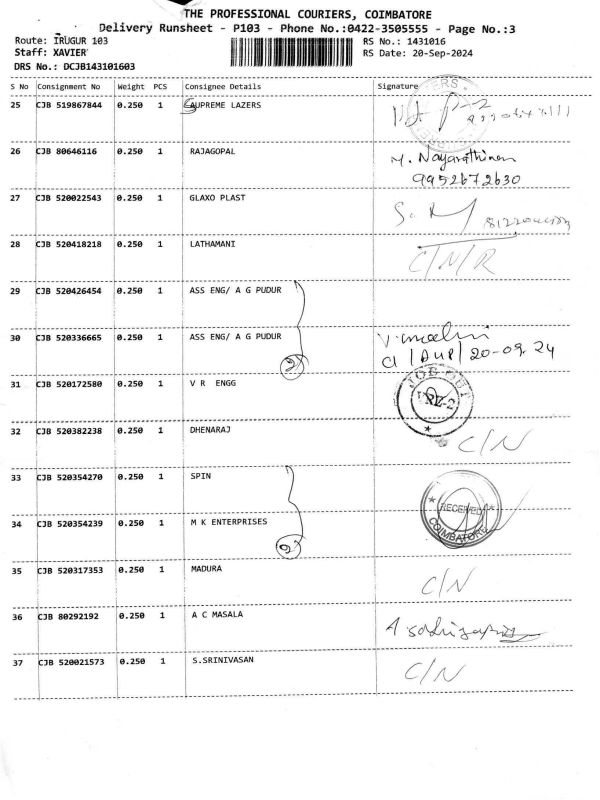 THE PROFESSIONAL COURIERS, COIMBATORE
Delivery Runsheet - P103 - Phone No.:0422-3505555 - Page No.:3
Route: IRUGUR 103 RS No.: 1431016
Staff: XAVIER RS Date: 20-Sep-2024
DRS No.: DCJB143101603
S No Consignment No Weight PCS Consignee Details Signature
25 CJB 519867844 0.250 1 SUPREME LAZERS
26 CJB 80646116 0.250 1 RAJAGOPAL M. Nayarathinan
9952672630
27 CJB 520022543 0.250 1 GLAXO PLAST
28 CJB 520418218 0.250 1 LATHAMANI C/N/R
29 CJB 520426454 0.250 1 ASS ENG/ A G PUDUR
30 CJB 520336665 0.250 1 ASS ENG/ A G PUDUR 2 V.malini
CI/AUP/20-09.24
31 CJB 520172580 0.250 1 V R ENGG JOB OUT
32 CJB 520382238 0.250 1 DHENARAJ C/N
33 CJB 520354270 0.250 1 SPIN RECEIVED
COIMBATORE
34 CJB 520354239 0.250 1 M K ENTERPRISES 2
35 CJB 520317353 0.250 1 MADURA C/N
36 CJB 80292192 0.250 1 A C MASALA
37 CJB 520021573 0.250 1 S.SRINIVASAN C/N